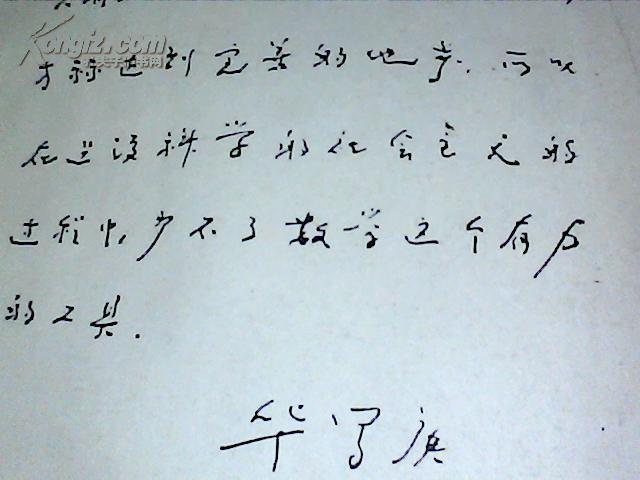 Kongfz.com
才称达到完善的地步.所以
在建设科学的社会主义的
过程中,少不了数学这个有力
的工具.
华罗庚